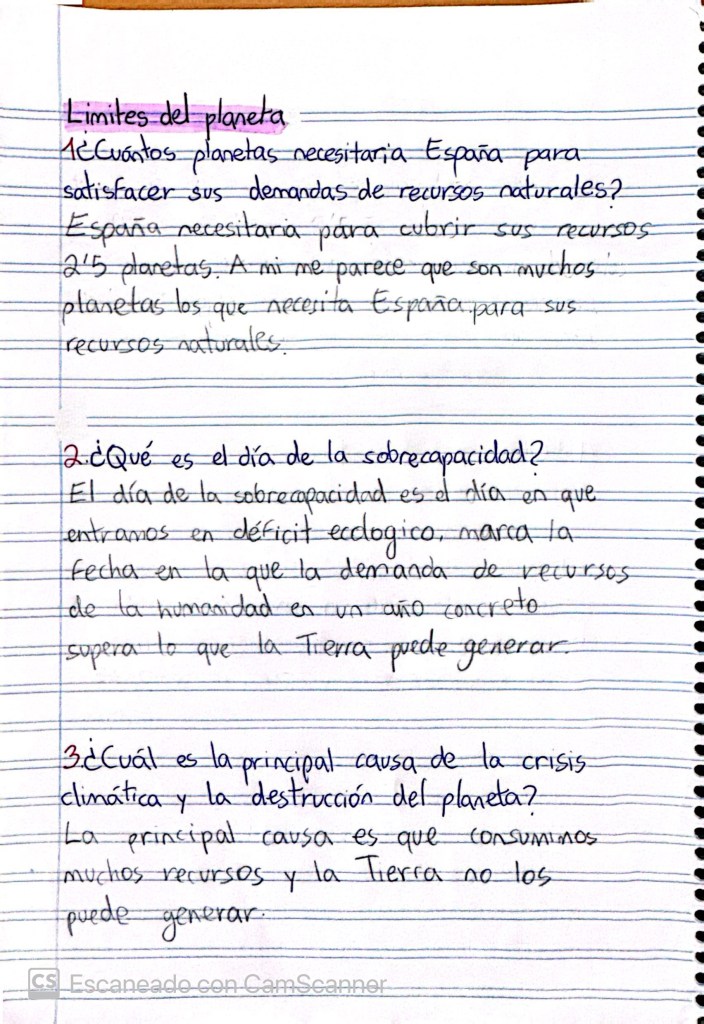 Limites del planeta
1¿Cuántos planetas necesitaria España para
satisfacer sus demandas de recursos naturales?
España necesitaria para cubrir sus recursos
2'5 planetas. A mi me parece que son muchos
planetas los que necesita España para sus
recursos naturales.
2.¿Qué es el día de la sobrecapacidad?
El día de la sobrecapacidad es el día en que
entramos en déficit ecologico, marca la
fecha en la que la demanda de recursos
de la humanidad en un año concreto
supera lo que la Tierra puede generar.
3.¿Cuál es la principal causa de la crisis
climática y la destrucción del planeta?
La principal causa es que consumimos
muchos recursos y la Tierra no los
puede generar.
CS Escaneado con CamScanner